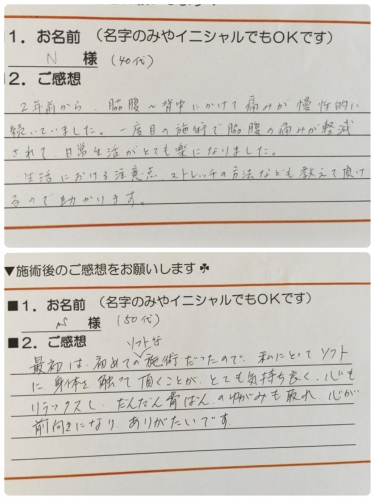 1．お名前 （名字のみやイニシャルでもOKです）
N 様 (40代)
2．ご感想
2年前から、脇腹～背中にかけて痛みが慢性的に
続いていました。一度目の施術で脇腹の痛みが軽減
されて、日常生活がとても楽になりました。
生活における注意点、ストレッチの方法なども教えて頂け
るので助かります。
▼施術後のご感想をお願いします☘
■1．お名前 （名字のみやイニシャルでもOKです）
様 (50代)
■2．ご感想
ソフトな
最初は、初めての施術だったので、私にとってソフト
に身体を触って頂くことが、とても気持ち良く、心も
リラックスし、だんだん骨ばんのゆがみも取れ、心が
前向きになり、ありがたいです。